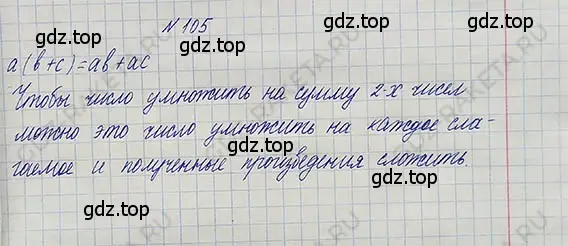 N 105
gdz.top gdz.top
a(b+c)=ab+ac
Чтобы число умножить на сумму 2-х чисел
gdz.top
можно это число умножить на каждое сла-
гаемое и полученные произведения сложить.
gdz.top gdz.top